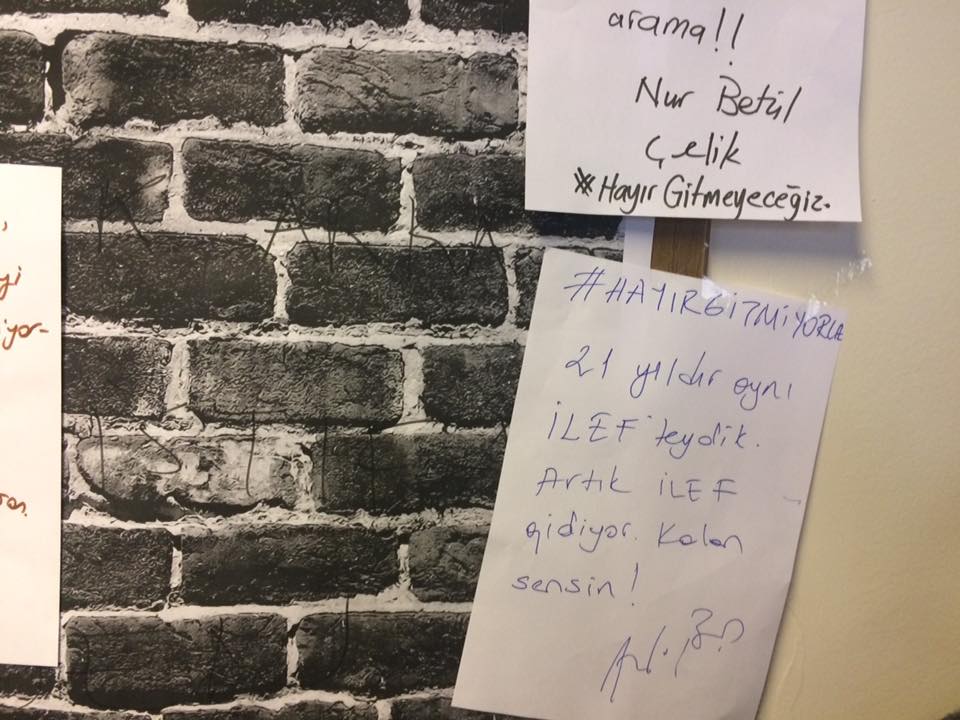 arama!!
Nur Betül
Çelik
Hayır Gitmeyeceğiz.
#HAYIRGİTMİYORLA
21 yıldır aynı
İLEF'teydik.
Artık İLEF
gidiyor. Kalan
sensin!
yi
iyor-